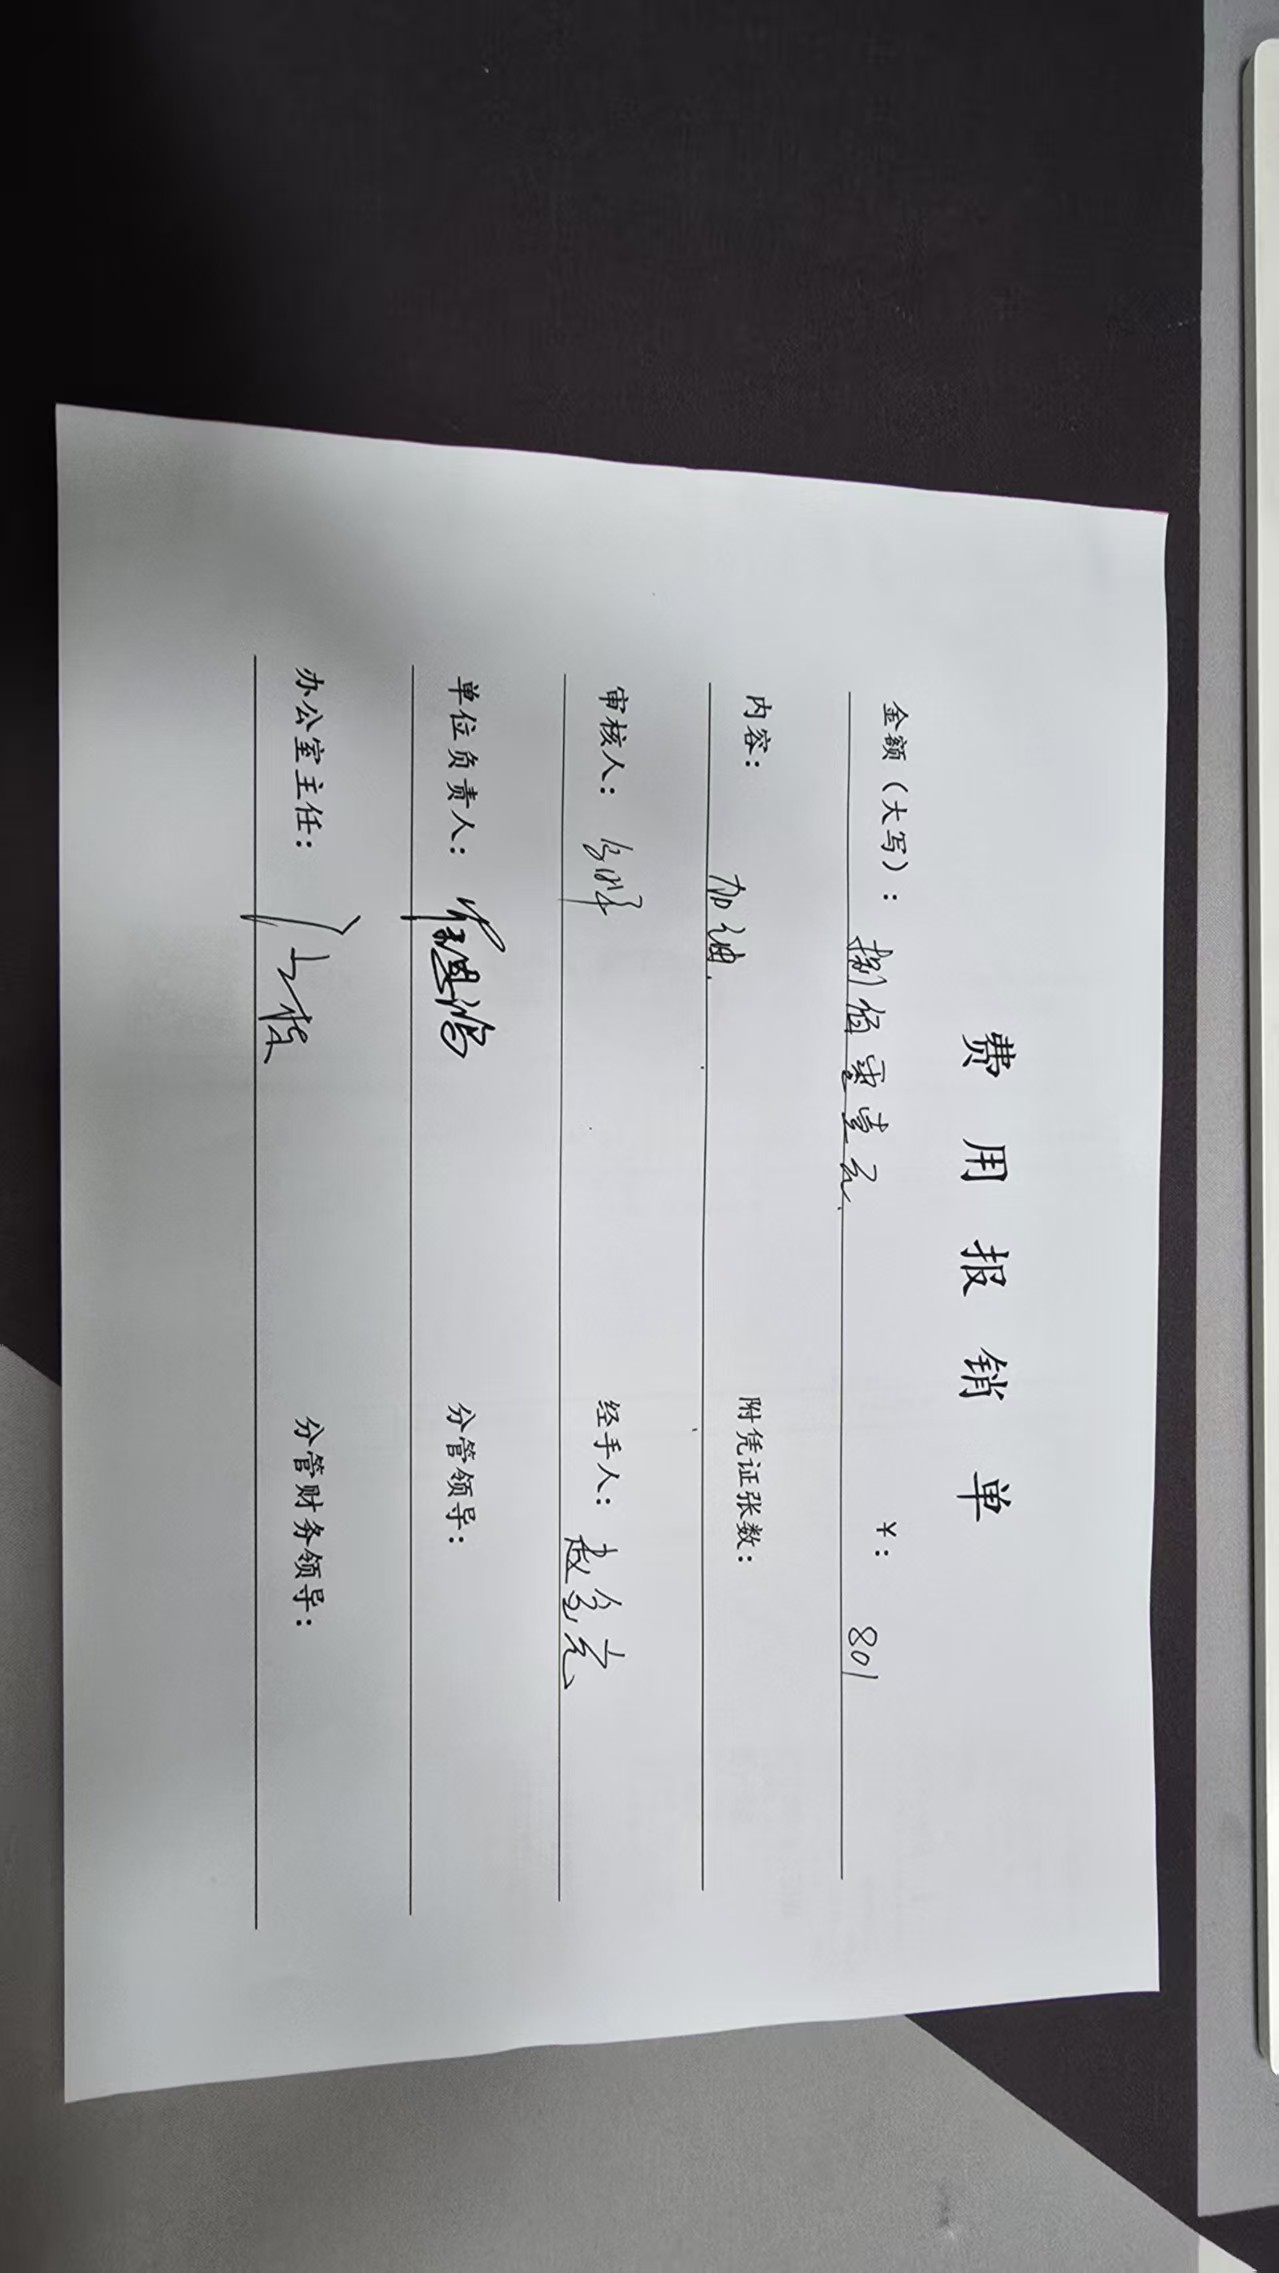 费用报销单
金额（大写）： 捌佰零壹元. ¥： 801
内容： 加油. 附凭证张数：
审核人： 经手人：
单位负责人： 分管领导：
办公室主任： 分管财务领导：